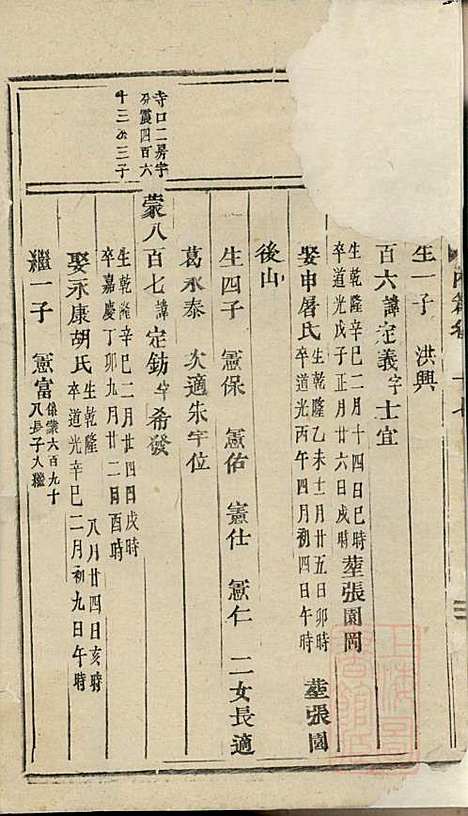 生一子　洪興
百六諱定義字士宜
生乾隆辛巳二月十四日巳時
卒道光戊子正月廿六日戌時　塟張園岡
娶申屠氏
生乾隆乙未十一月廿五日卯時
卒道光丙午四月初四日午時　塟張園
後山
生四子　憲保　憲佑　憲仕　憲仁　二女長適
葛永泰　次適朱字位
寺口二房字
分震四百六
十三公三子
蒙八百七諱定鈁字希發
生乾隆辛巳二月廿四日戌時
卒嘉慶丁卯九月廿二日酉時
娶永康胡氏
生乾隆　八月廿四日亥時
卒道光辛巳二月初九日午時
繼一子　憲富
係蒙六百九十
八長子入繼